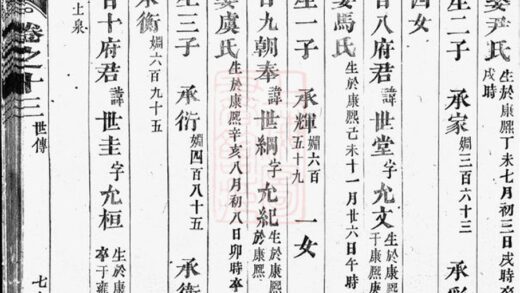 尹氏生於康熙丁未七月初三日戌時
戌時
生二子 承家嫺三百六十三 承彩
四女
廿八府君諱世堂字允文生於康熙
于康熙
娶馬氏生於康熙己未十一月廿六日午時
生一子 承輝嫺六百五十九 一女
廿九朝奉諱世綱字允紀生於康熙
於康熙
娶虞氏生於康熙辛亥八月初八日卯時卒
生三子 承衍嫺四百八十五 承衛
承衡嫺六百九十五
十府君諱世圭字允桓生於康
卒于雍
土泉
卷之十三 世傳 七